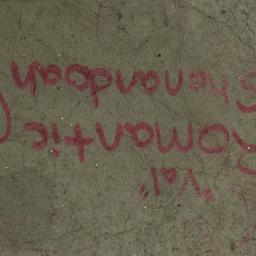 "Val"
Romantic
Shenandoah